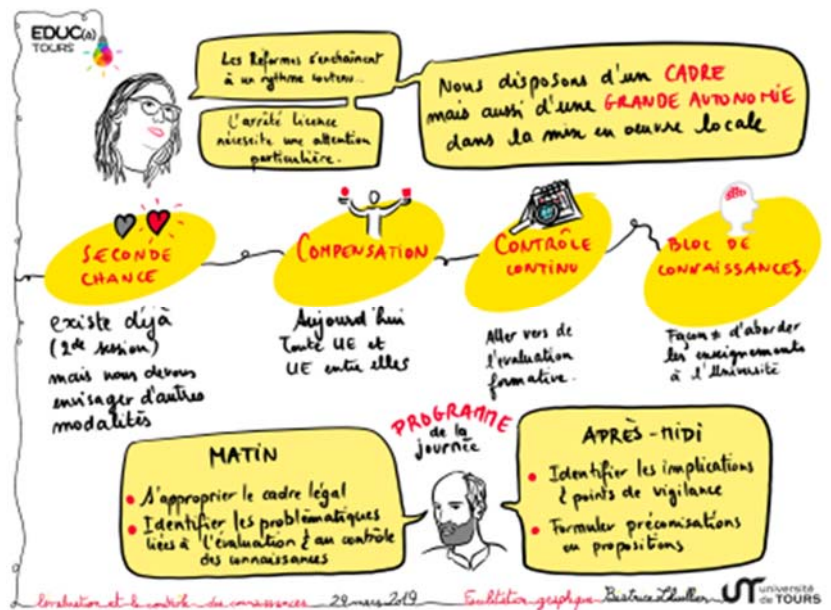 EDUC(a)
TOURS
Les Réformes s'enchaînent
à un rythme soutenu...
L'arrêté licence
nécessite une attention
particulière.
Nous disposons d'un CADRE
mais aussi d'une GRANDE AUTONOMIE
dans la mise en oeuvre locale
SECONDE
CHANCE
existe déjà
(2de session)
mais nous devons
envisager d'autres
modalités
COMPENSATION
Aujourd'hui
Toute UE et
UE entre elles
CONTRÔLE
CONTINU
Aller vers de
l'évaluation
formative.
BLOC DE
CONNAISSANCES.
Façon ≠ d'aborder
les enseignements
à l'Université
PROGRAMME
de la
journée
MATIN
• S'approprier le cadre légal
• Identifier les problématiques
liées à l'évaluation & au contrôle
des connaissances
APRÈS-MIDI
• Identifier les implications
& points de vigilance
• Formuler préconisations
ou propositions
L'évaluation et le contrôle des connaissances 29 mars 2019 Facilitation graphique Béatrice Lhuillier
UT université
de TOURS